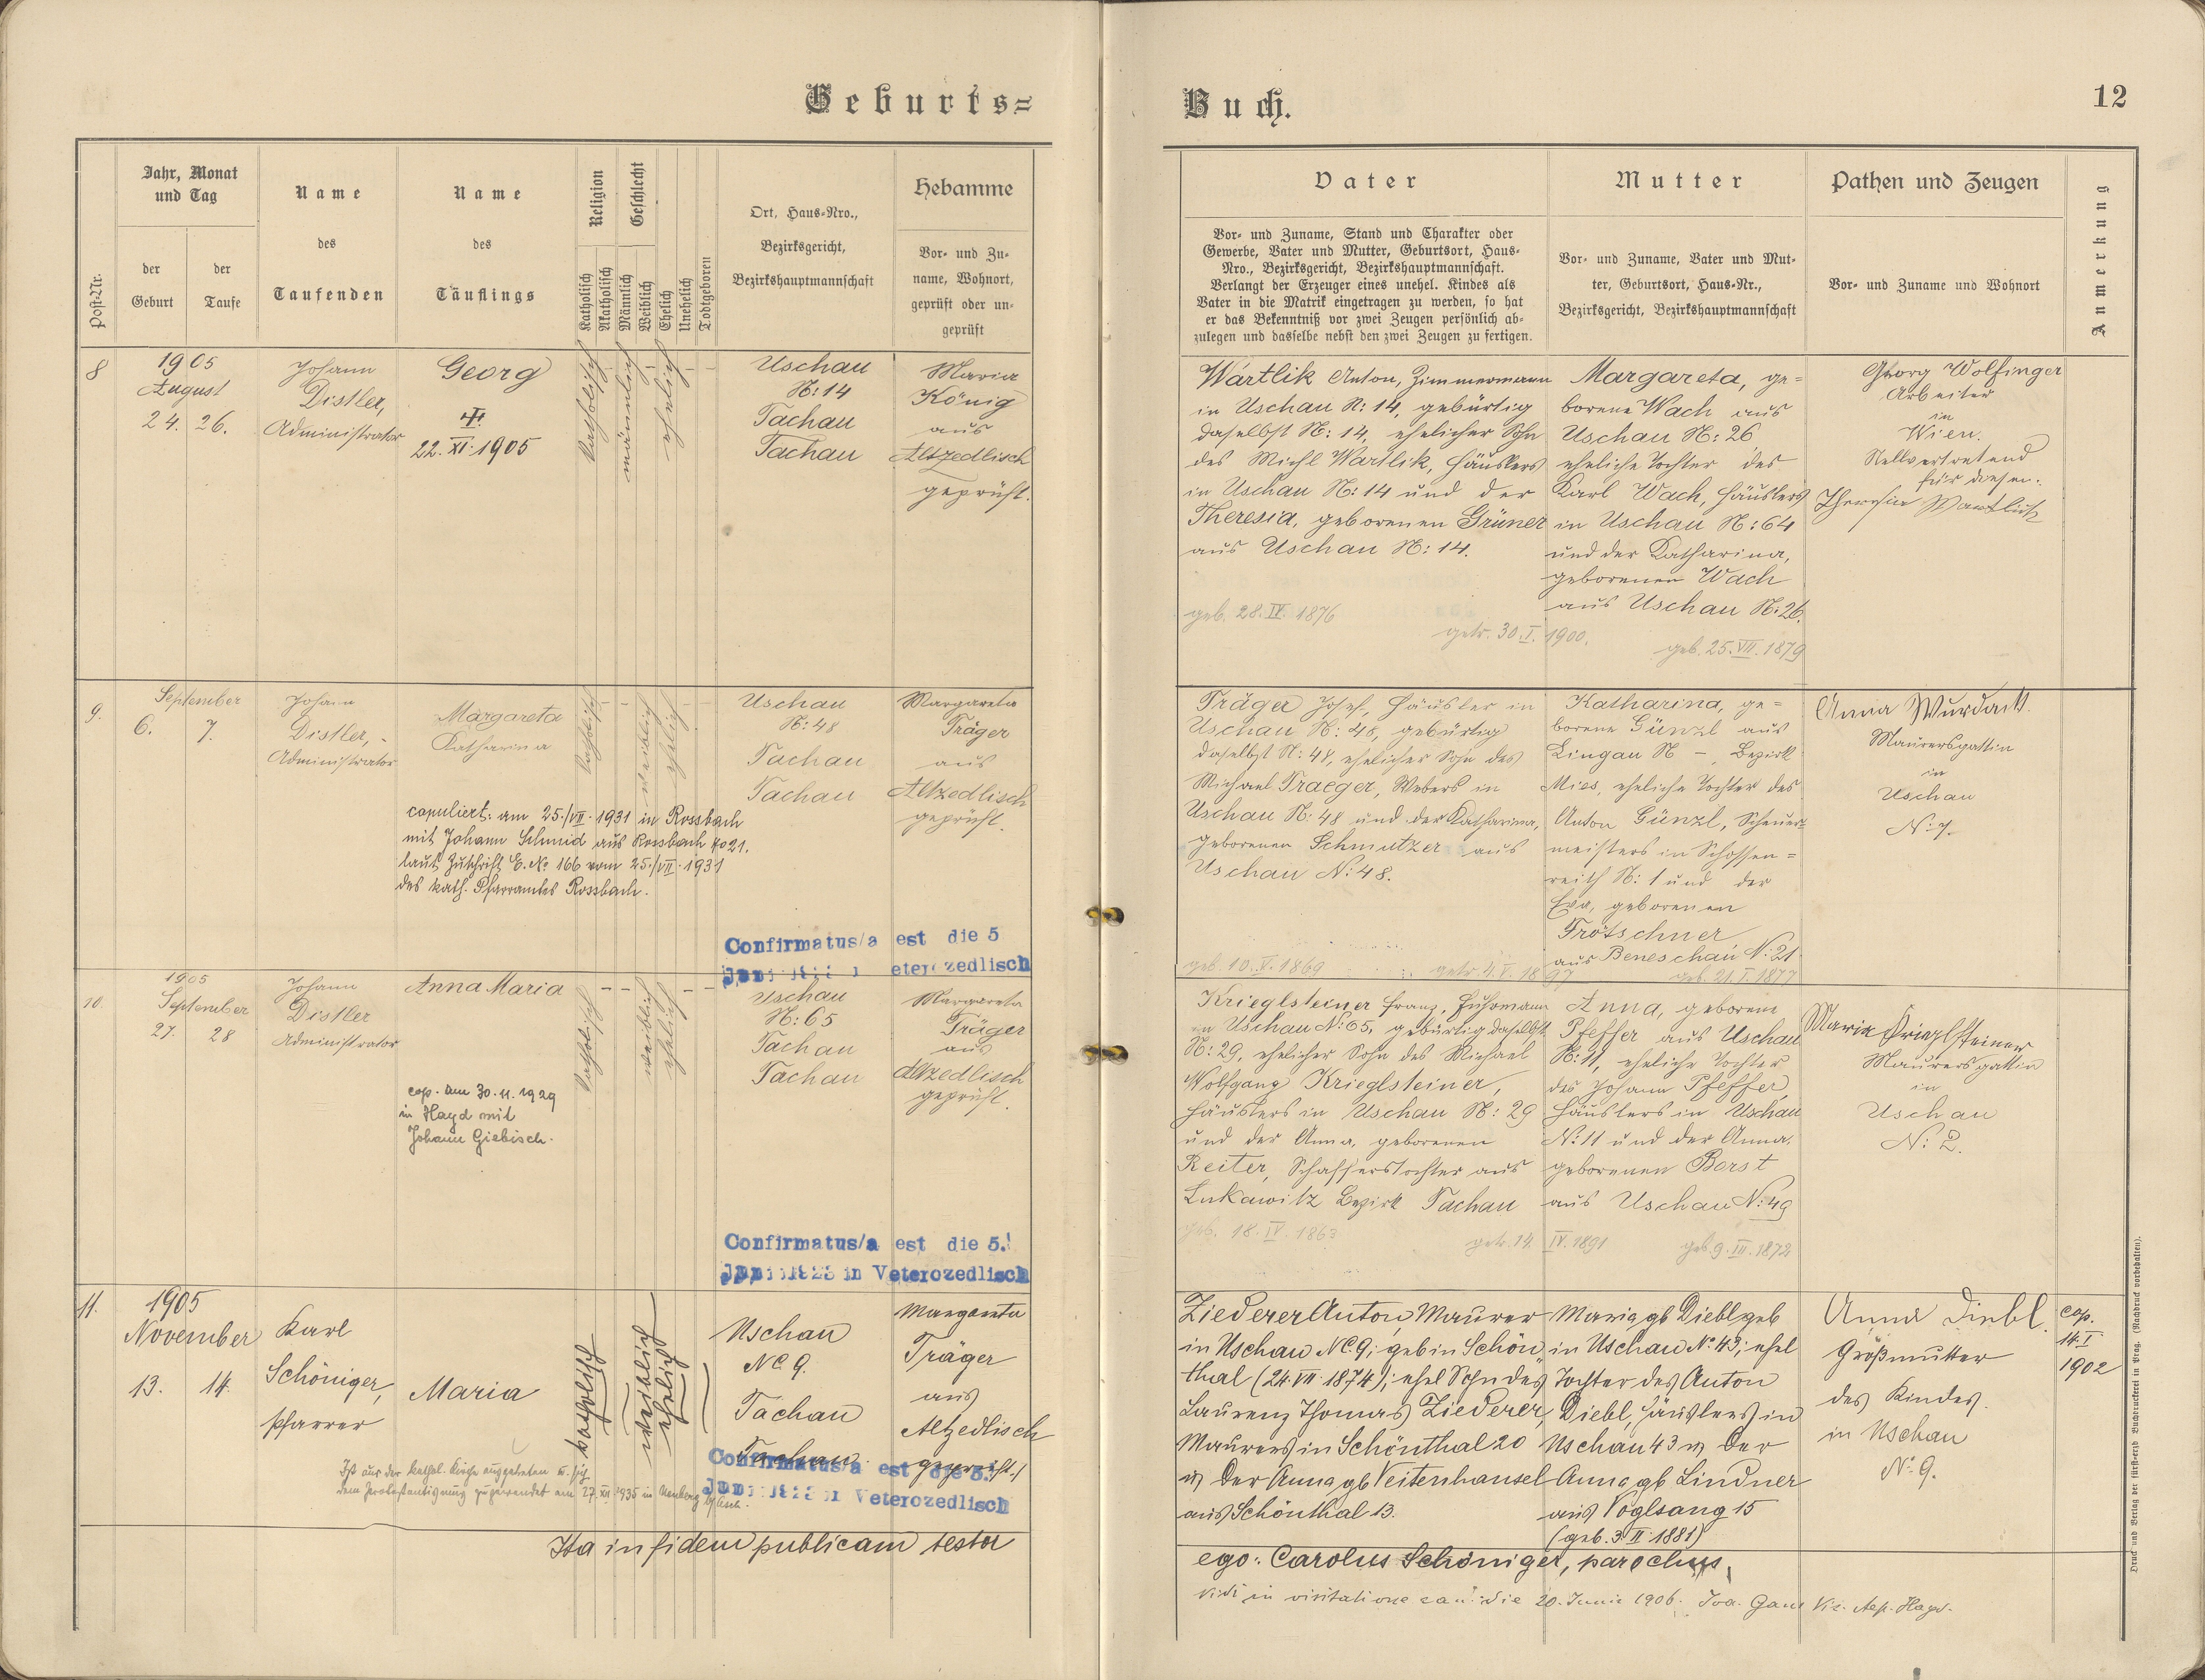 Geburts=
Buch.
12
Post-Nr.
Jahr, Monat
und Tag
der
Geburt
der
Taufe
Name
des
Taufenden
Name
des
Täuflings
Religion
Katholisch
Akatholisch
Geschlecht
Männlich
Weiblich
Ehelich
Unehelich
Todtgeboren
Ort, Haus-Nro.,
Bezirksgericht,
Bezirkshauptmannschaft
Hebamme
Vor- und Zu-
name, Wohnort,
geprüft oder un-
geprüft
Vater
Vor- und Zuname, Stand und Charakter oder
Gewerbe, Vater und Mutter, Geburtsort, Haus-
Nro., Bezirksgericht, Bezirkshauptmannschaft.
Verlangt der Erzeuger eines unehel. Kindes als
Vater in die Matrik eingetragen zu werden, so hat
er das Bekenntniß vor zwei Zeugen persönlich ab-
zulegen und dasselbe nebst den zwei Zeugen zu fertigen.
Mutter
Vor- und Zuname, Vater und Mut-
ter, Geburtsort, Haus-Nr.,
Bezirksgericht, Bezirkshauptmannschaft
Pathen und Zeugen
Vor- und Zuname und Wohnort
Anmerkung
8
1905
August
24. 26.
Johann
Distler,
Administrator
Georg
22. XI. 1905
katholisch
männlich
ehelich
Uschau
N: 14
Tachau
Tachau
Maria
König
aus
Altzedlisch
geprüft.
Wartlik Anton, Zimmermann
in Uschau N: 14, gebürtig
daselbst N: 14, ehelicher Sohn
des Michl Wartlik, Häuslers
in Uschau N: 14 und der
Theresia, geborenen Grüner
aus Uschau N: 14.
geb. 28. IV. 1876
getr. 30. I. 1900.
Margareta, ge=
borene Wach aus
Uschau N: 26
eheliche Tochter des
Karl Wach, Häuslers
in Uschau N: 64
und der Katharina,
geborenen Wach
aus Uschau N: 26.
geb. 25. VII. 1879
Georg Wolfinger
Arbeiter
in
Wien.
Stellvertretend
für diesen:
Theresia Wartlick
9.
September
6. 7.
Johann
Distler, -
Administrator
Margareta
Katharina
copuliert: am 25./VII. 1931 in Rossbach
mit Johann Schmid aus Rossbach No 21.
laut Zuschrift E. No 166 vom 25/VII. 1931
des kath. Pfarramtes Rossbach.
katholisch
weiblich
ehelich
Uschau
N: 48
Tachau
Tachau
Margareta
Träger
aus
Altzedlisch
geprüft.
Confirmatus/a est die 5
Träger Josef, Häusler in
Uschau N: 48, gebürtig
daselbst N: 48, ehelicher Sohn des
Michael Traeger, Webers in
Uschau N: 48 und der Katharina,
geborenen Schmutzer aus
Uschau N: 48.
geb. 10. V. 1869
getr. 4. V. 1897
Katharina, ge=
borene Günzl aus
Lingau N -, Bezirk
Mies, eheliche Tochter des
Anton Günzl, Scheuer=
meisters in Schossen=
reith N: 1 und der
Eva, geborenen
Trötschner
aus Beneschau N: 21
geb. 21. I. 1877
Anna Wurdack
Maurersgattin
in
Uschau
N: 7.
10.
1905
September
27. 28
Johann
Distler
Administrator
Anna Maria
cop. am 30. 11. 1929
in Hayd mit
Johann Giebisch.
katholisch
weiblich
ehelich
Uschau
N: 65
Tachau
Tachau
Margareta
Träger
aus
Altzedlisch
geprüft.
Confirmatus/a est die 5.
Juni 1923 in Veterozedlisch
Krieglsteiner Franz, Fuhrmann
in Uschau N: 65, gebürtig daselbst
N: 29, ehelicher Sohn des Michael
Wolfgang Krieglsteiner,
Häuslers in Uschau N: 29
und der Anna, geborenen
Reiter, Schafferstochter aus
Lukawitz Bezirk Tachau
geb. 18. IV. 1863
getr. 14. IV. 1891
Anna, geborene
Pfeffer aus Uschau
N: 11, eheliche Tochter
des Johann Pfeffer,
Häuslers in Uschau
N: 11 und der Anna,
geborenen Borst
aus Uschau N: 49
geb. 9. III. 1872
Maria Krieglsteiner
Maurersgattin
in
Uschau
N: 2.
11.
1905
November
13. 14.
Karl
Schöniger,
Pfarrer
Maria
Ist aus der kathol. Kirche ausgetreten u. sich
dem Protestantismus zugewendet am 27. XII. 1935 in Neuberg b/Asch.
katholisch
weiblich
ehelich
Uschau
No 9.
Tachau
Tachau.
Margareta
Träger
aus
Altzedlisch
geprüft.
Confirmatus/a est die 5.
Juni 1923 in Veterozedlisch
Ziederer Anton, Maurer
in Uschau No 9; geb in Schön
thal (24. VII 1874); ehel Sohn des
Laurenz Thomas Ziederer,
Maurers in Schönthal 20
u. der Anna gb Veitenhansel
aus Schönthal 13.
Maria gb Diebl geb
in Uschau No 43; ehel
Tochter des Anton
Diebl, Häuslers in
Uschau 43 u. der
Anna gb Lindner
aus Voglsang 15
(geb. 3. II 1881)
Anna Diebl.
Großmutter
des Kindes.
in Uschau
No 9.
cop.
14. I
1902
Ita in fidem publicam testor
ego: Carolus Schöniger, parochus.
Vidi in visitatione can: die 20. Junii 1906.
Druck und Verlag der fürsterzb. Buchdruckerei in Prag. (Nachdruck vorbehalten).